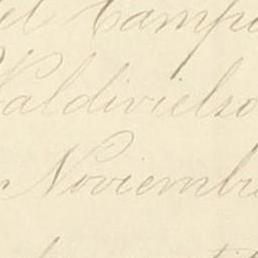 el Campo
Valdivielso
Noviembre